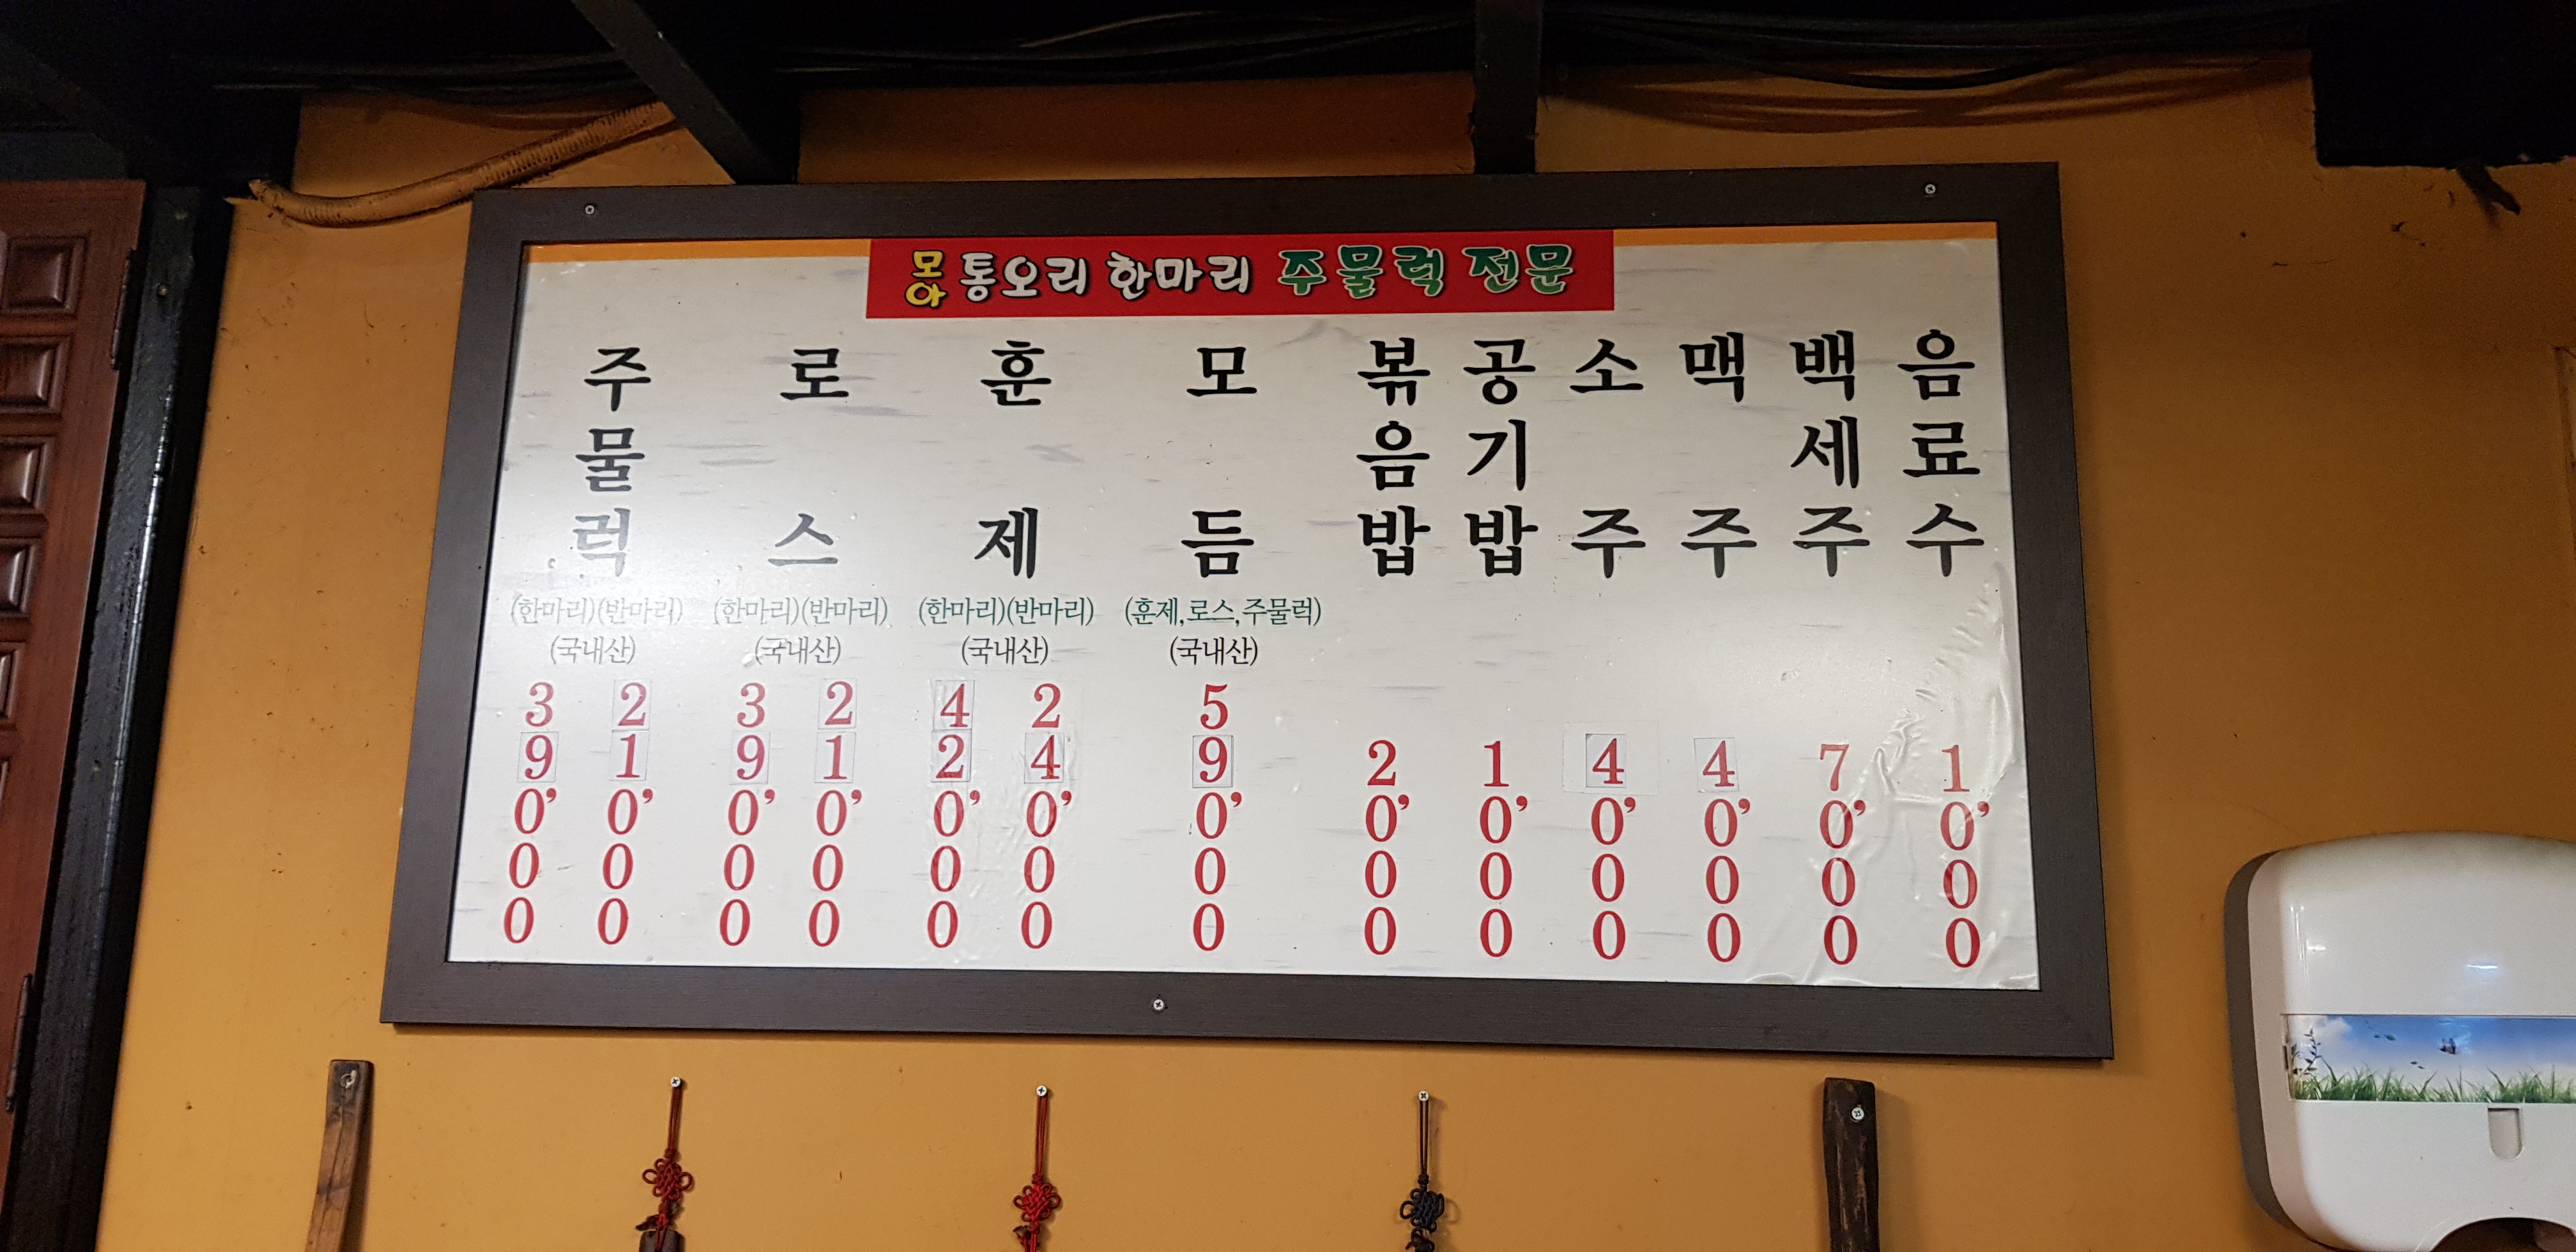 모아 통오리 한마리 주물럭 전문
주물럭
(한마리)(반마리)
(국내산)
39,000 21,000
로스
(한마리)(반마리)
(국내산)
39,000 21,000
훈제
(한마리)(반마리)
(국내산)
42,000 24,000
모듬
(훈제,로스,주물럭)
(국내산)
59,000
볶음밥
2,000
공기밥
1,000
소주
4,000
맥주
4,000
백세주
7,000
음료수
1,000